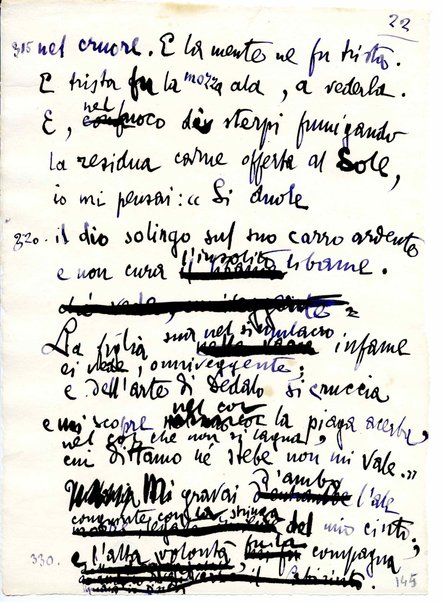 22
315 nel cruore. E la mente ne fu trista.
E trista fu la mozza ala, a vederla.
E, nel fuoco di sterpi fumigando
la residua carne offerta al Sole,
io mi pensai: « Si duole
320. il dio solingo sul suo carro ardente
e non cura l'insolito libame.
La figlia sua nel simulacro infame
ei vede, onniveggente;
e dell'arte di Dedalo si cruccia
e mi scopre nel cor la piaga acerba,
nel cor che non si lagna,
cui dittamo né stebe non mi vale. »
Mi gravai d'ambo l'ale
congiunte con la stringa del mio cinto;
330. e l'alta volontà, fu la compagna
145